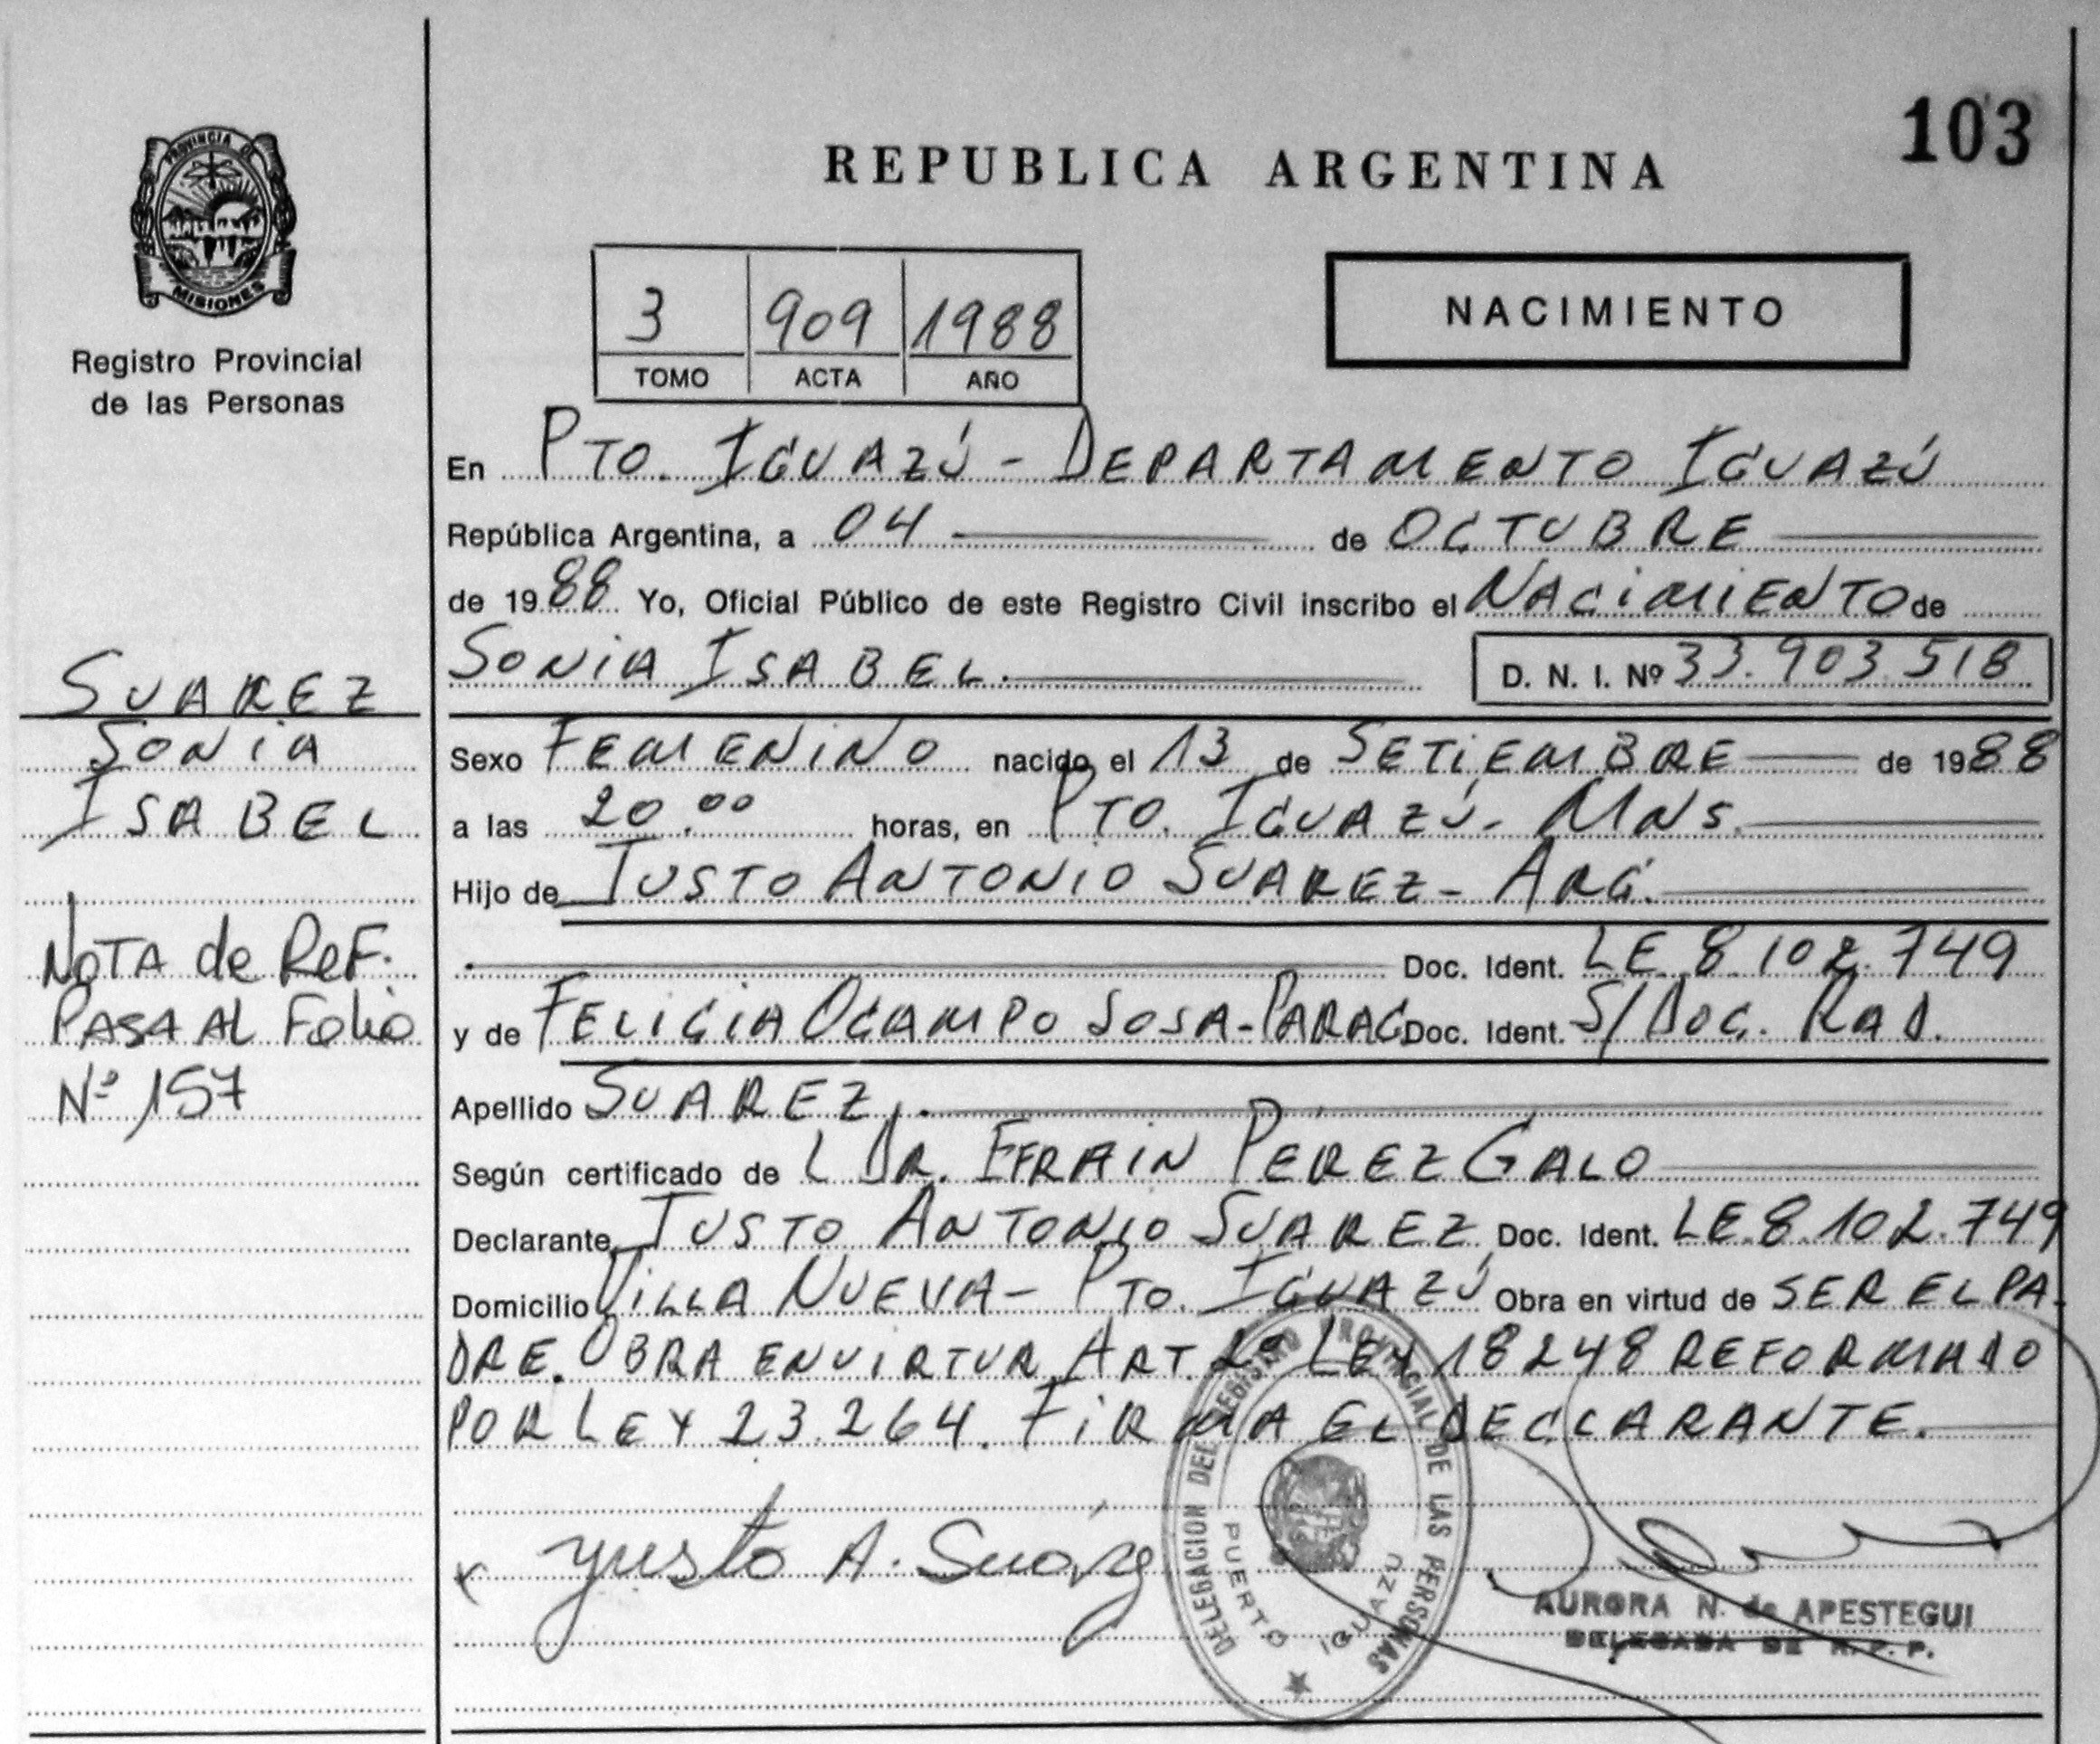 103
REPUBLICA ARGENTINA
PROVINCIA DE
MISIONES
Registro Provincial
de las Personas
3 909 1988
TOMO ACTA AÑO
NACIMIENTO
En PTO. IGUAZÚ - DEPARTAMENTO IGUAZÚ
República Argentina, a 04 de OCTUBRE
de 1988 Yo, Oficial Público de este Registro Civil inscribo el NACIMIENTO de
SONIA ISABEL. D. N. I. Nº 33.903.518
SUAREZ
SONIA
ISABEL
NOTA de REF.
PASA AL Folio
Nº 157
Sexo FEMENINO nacido el 13 de SETIEMBRE de 1988
a las 20.00 horas, en PTO. IGUAZÚ. MNS.
Hijo de JUSTO ANTONIO SUAREZ - ARG.
Doc. Ident. LE 8.102.749
y de FELICIA OCAMPO SOSA - PARAG Doc. Ident. S/DOC. RAD.
Apellido SUAREZ.
Según certificado de L DR. EFRAIN PEREZ GALO
Declarante JUSTO ANTONIO SUAREZ Doc. Ident. LE 8.102.749
Domicilio VILLA NUEVA - PTO. IGUAZÚ Obra en virtud de SER EL PA
DRE. OBRA EN VIRTUR ART. 2º LEY 18248 REFORMADO
POR LEY 23.264. FIRMA EL DECLARANTE.
x Justo A. Suárez
DELEGACION DEL REGISTRO PROVINCIAL DE LAS PERSONAS
PUERTO IGUAZU
AURORA N. de APESTEGUI
DELEGADA DE R. P. P.